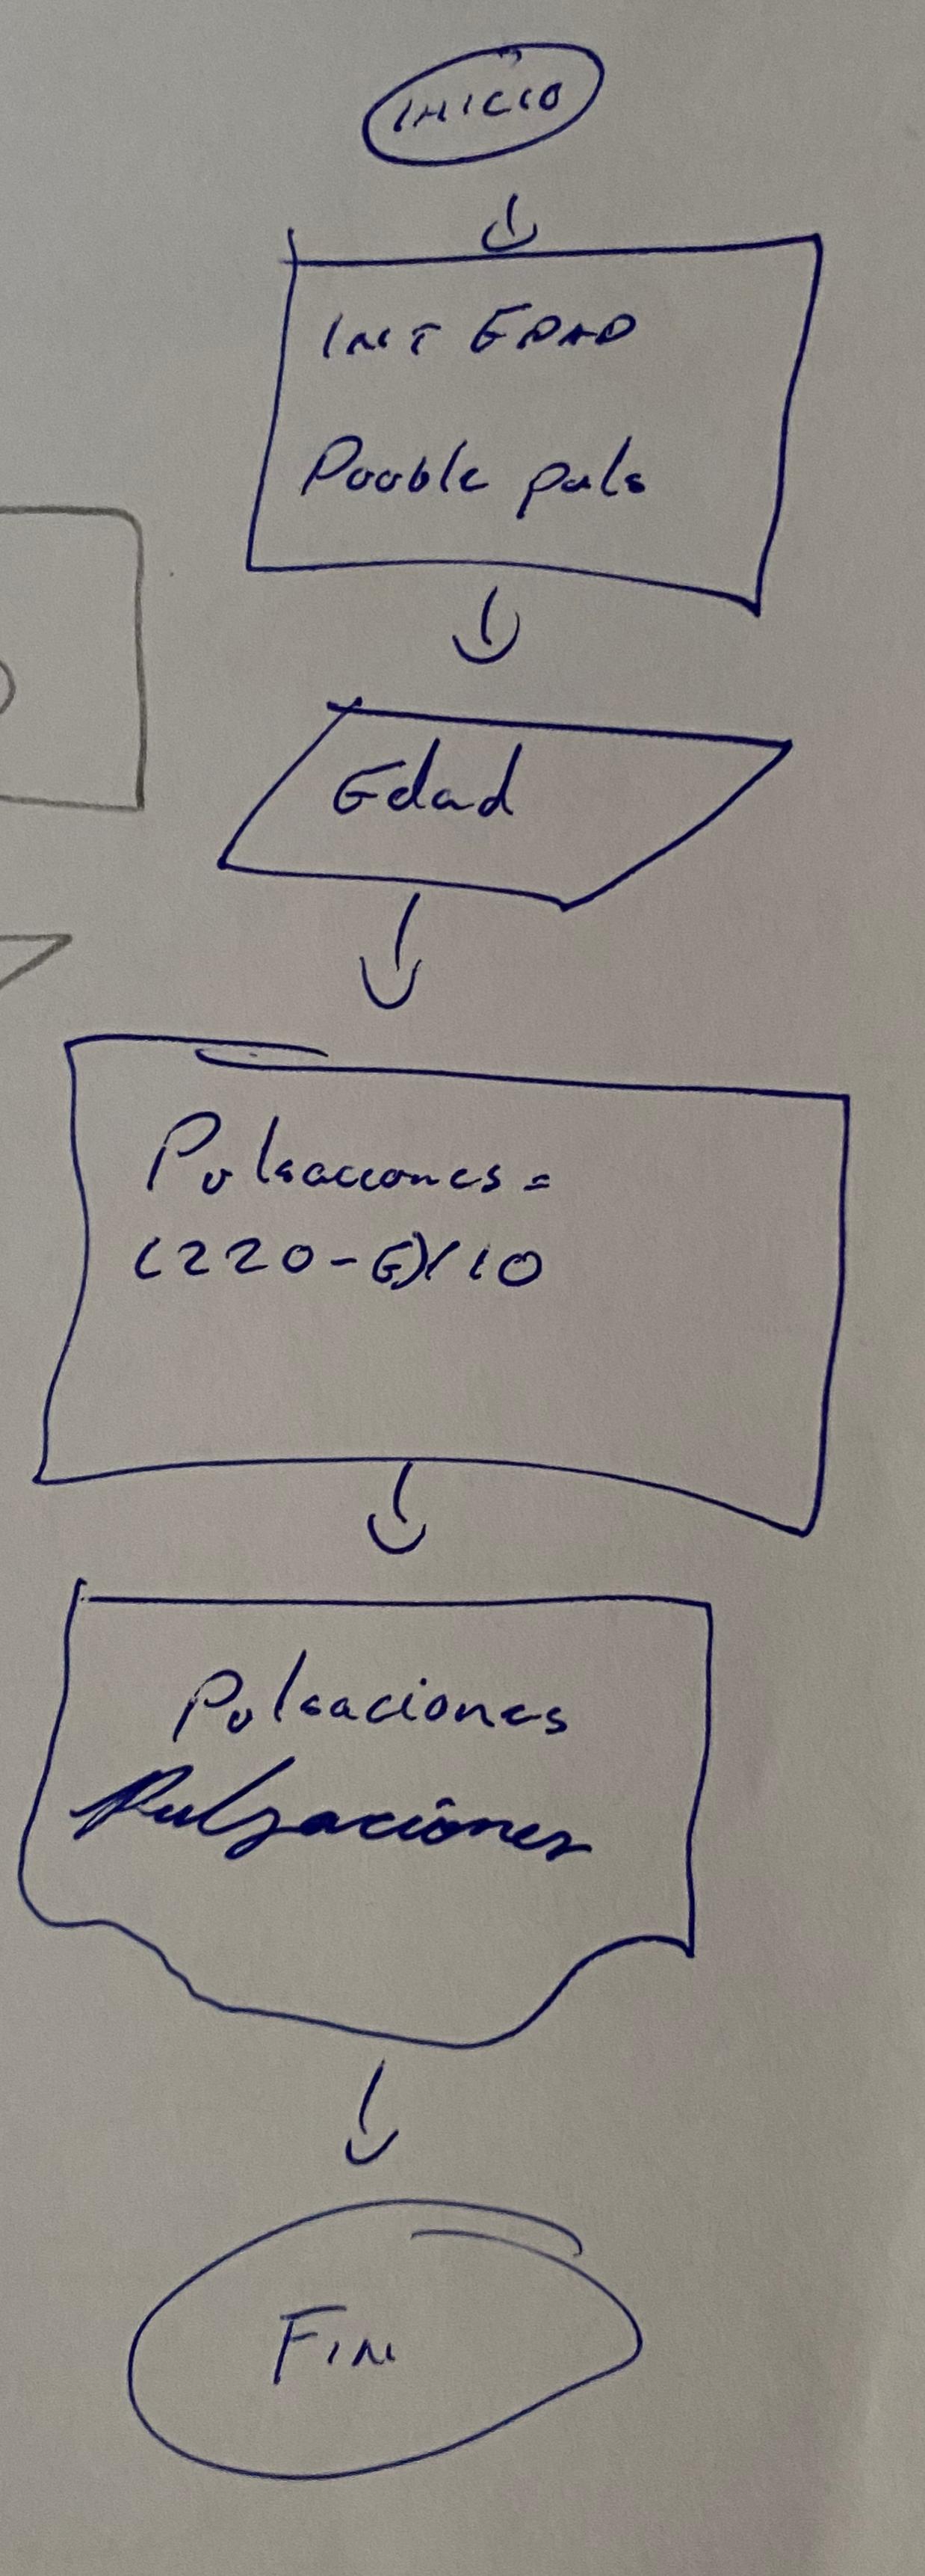 INICIO
INT EDAD
Double puls
Edad
Pulsaciones =
(220-E)/10
Pulsaciones
Pulsaciones
FIN